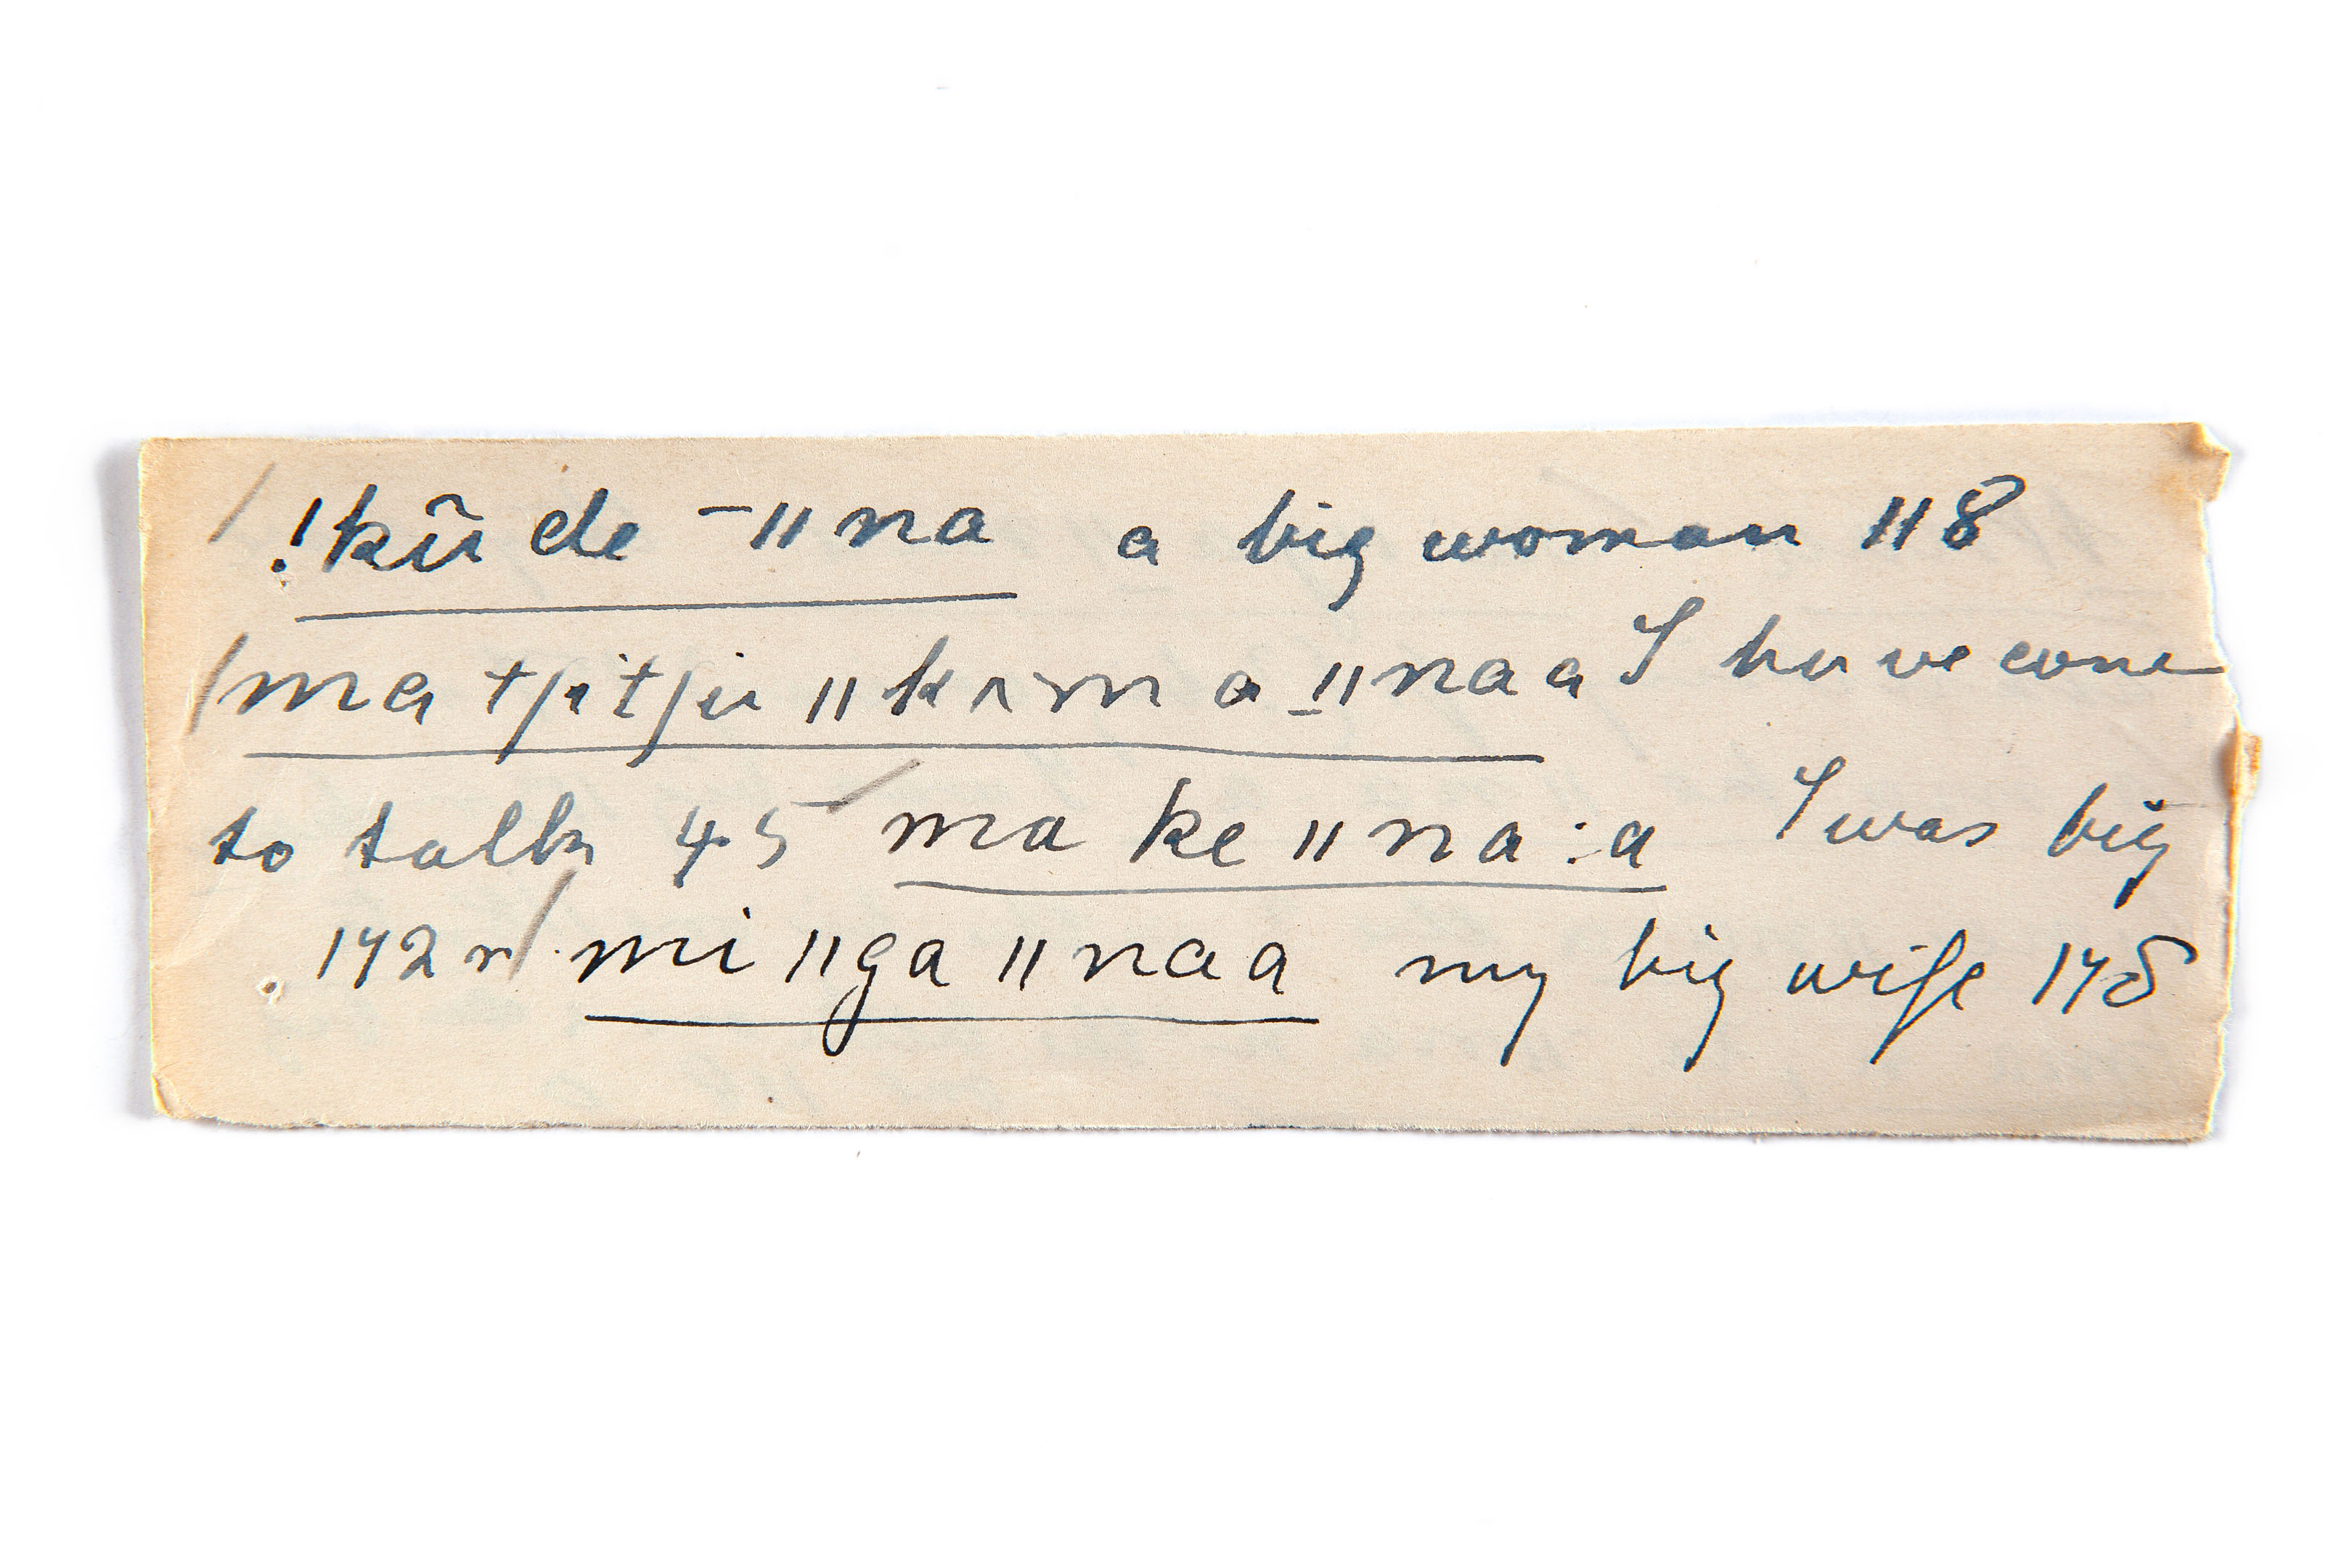 !kũ de ¯ǁna a big woman 118
ma tʃitʃu ǁkʌm a ǁnaa I have come
to talk 45 ma ke ǁna:a I was big
172r mi ǁga ǁnaa my big wife 178